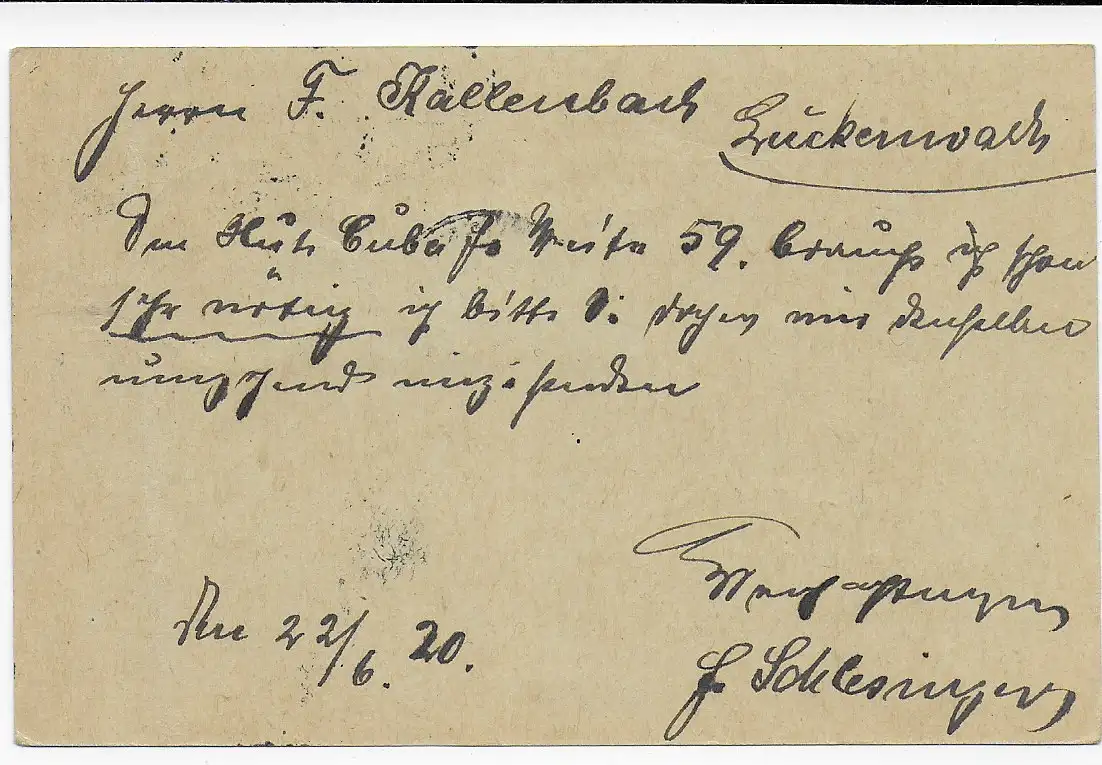 Herrn F. Kallenbach
Luckenwalde
Den Hut Cuba Weite 59. brauche ich schon
sehr nötig ich bitte Sie daher mir denselben
umgehend einzusenden
Hochachtungsvoll
Den 22/6. 20.
Schlesinger